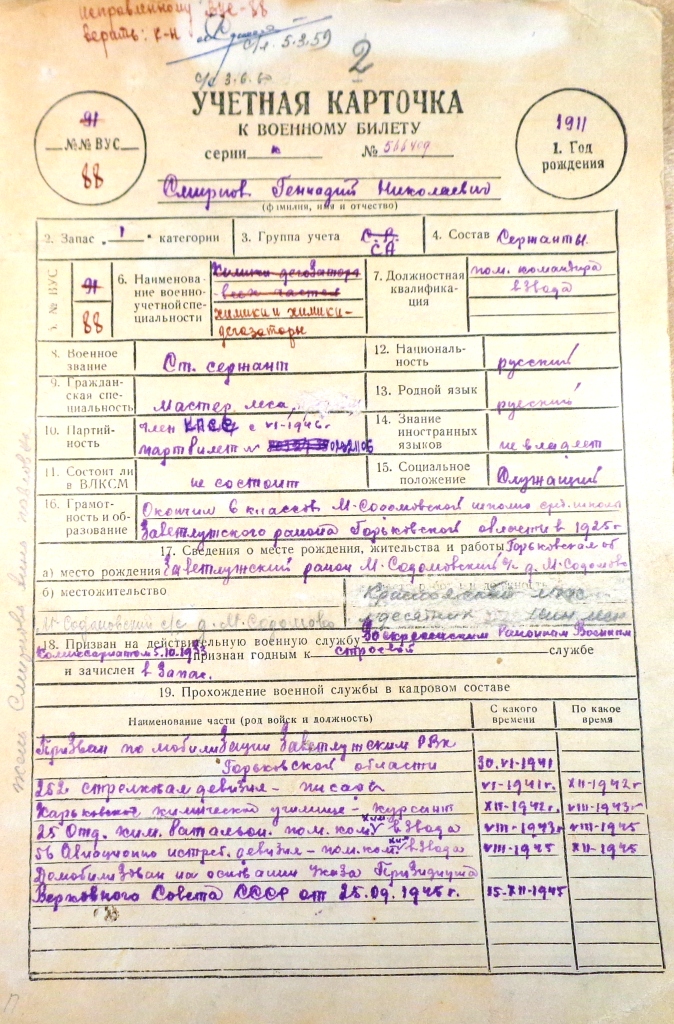 исправленному ВУС-88
верить:
с/л. 5.3.59
2
с/с 3.6.60
УЧЕТНАЯ КАРТОЧКА
К ВОЕННОМУ БИЛЕТУ
серии ю № 566409
91
№№ ВУС
88
1911
1. Год
рождения
Смирнов Геннадий Николаевич
(фамилия, имя и отчество)
2. Запас „1" категории
3. Группа учета С.В. СА
4. Состав Сержанты
5. № ВУС 91 88
6. Наименова-
ние военно-
учетной спе-
циальности
Химики дегазатора
всех частей
химики и химики-
дегазаторы
7. Должностная
квалифика-
ция
пом. командира
взвода
8. Военное
звание
Ст. сержант
12. Националь-
ность
русский
9. Граждан-
ская спе-
циальность
Мастер леса,
13. Родной язык
русский
10. Партий-
ность
член КПСС с VI-1946г
партбилет №
14. Знание
иностранных
языков
не владеет
11. Состоит ли
в ВЛКСМ
не состоит
15. Социальное
положение
Служащий
16. Грамот-
ность и об-
разование
Окончил 6 классов М-Содомовской школы
Заветлужского района Горьковской области в 1925г
17. Сведения о месте рождения, жительства и работы Горьковская об
а) место рождения Заветлужский район М. Содомовский с/с д. М. Содомово
б) местожительство
М-Содомовский с/с д. М. Содомово
18. Призван на действительную военную службу Воскресенским Районным Военным
комиссариатом 5.10.1933 признан годным к строевой службе
и зачислен в запас.
19. Прохождение военной службы в кадровом составе
Наименование части (род войск и должность)
С какого
времени
По какое
время
Призван по мобилизации Заветлужским РВК
Горьковской области 30.VI-1941
252 стрелковая дивизия - писарь VI-1941г. XII-1942г
Харьковское химическое училище - курсант XII-1942г. VIII-1943г
25 Отд. хим. батальон. пом. ком. хим взвода VIII-1943г VIII-1945
56 Авиационно истреб. дивизия - пом. ком. хим взвода VIII-1945 XII-1945
Домобилизован на основании указа Призидиума
Верховного Совета СССР от 25.09.1945г. 15-XII-1945
жена Смирнова